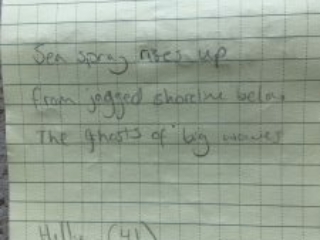 Sea spray rises up
from jagged shoreline below
The ghosts of big waves
(41)